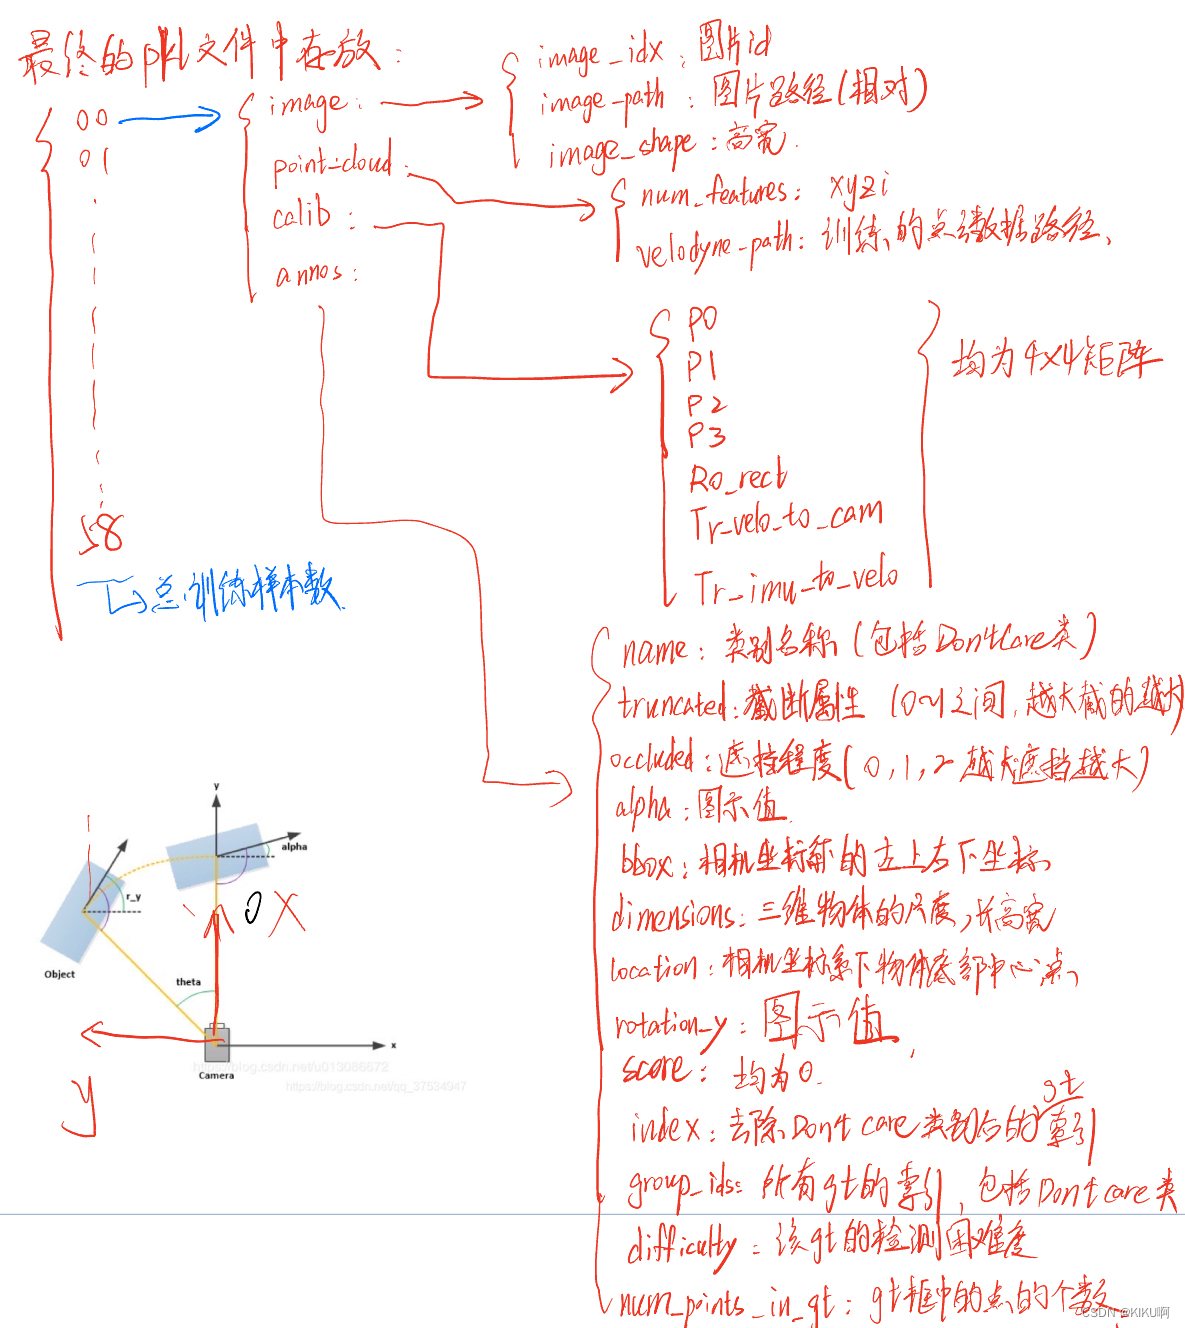 最终的pkl文件中存放：
00
01
58
总训练样本数
image：
point_cloud
calib：
annos：
image_idx：图片id
image_path：图片路径(相对)
image_shape：高宽
num_features：xyzi
velodyne_path：训练的点云数据路径
P0
P1
P2
P3
R0_rect
Tr_velo_to_cam
Tr_imu_to_velo
均为4x4矩阵
name：类别名称（包括DontCare类）
truncated：截断属性（0~1之间，越大截的越大）
occluded：遮挡程度(0,1,2 越大遮挡越大)
alpha：图示值
bbox：相机坐标系的左上右下坐标
dimensions：三维物体的尺度，长高宽
location：相机坐标系下物体底部中心点
rotation_y：图示值
score：均为0.
index：去除Dont care类别后的gt索引
group_ids：所有gt的索引，包括Dont care类
difficulty：该gt的检测困难度
num_points_in_gt：gt框中的点的个数
y
alpha
r_y
0 X
Object
theta
x
Camera
y
https://blog.csdn.net/u013086672
https://blog.csdn.net/qq_37534947
CSDN @KIKU啊